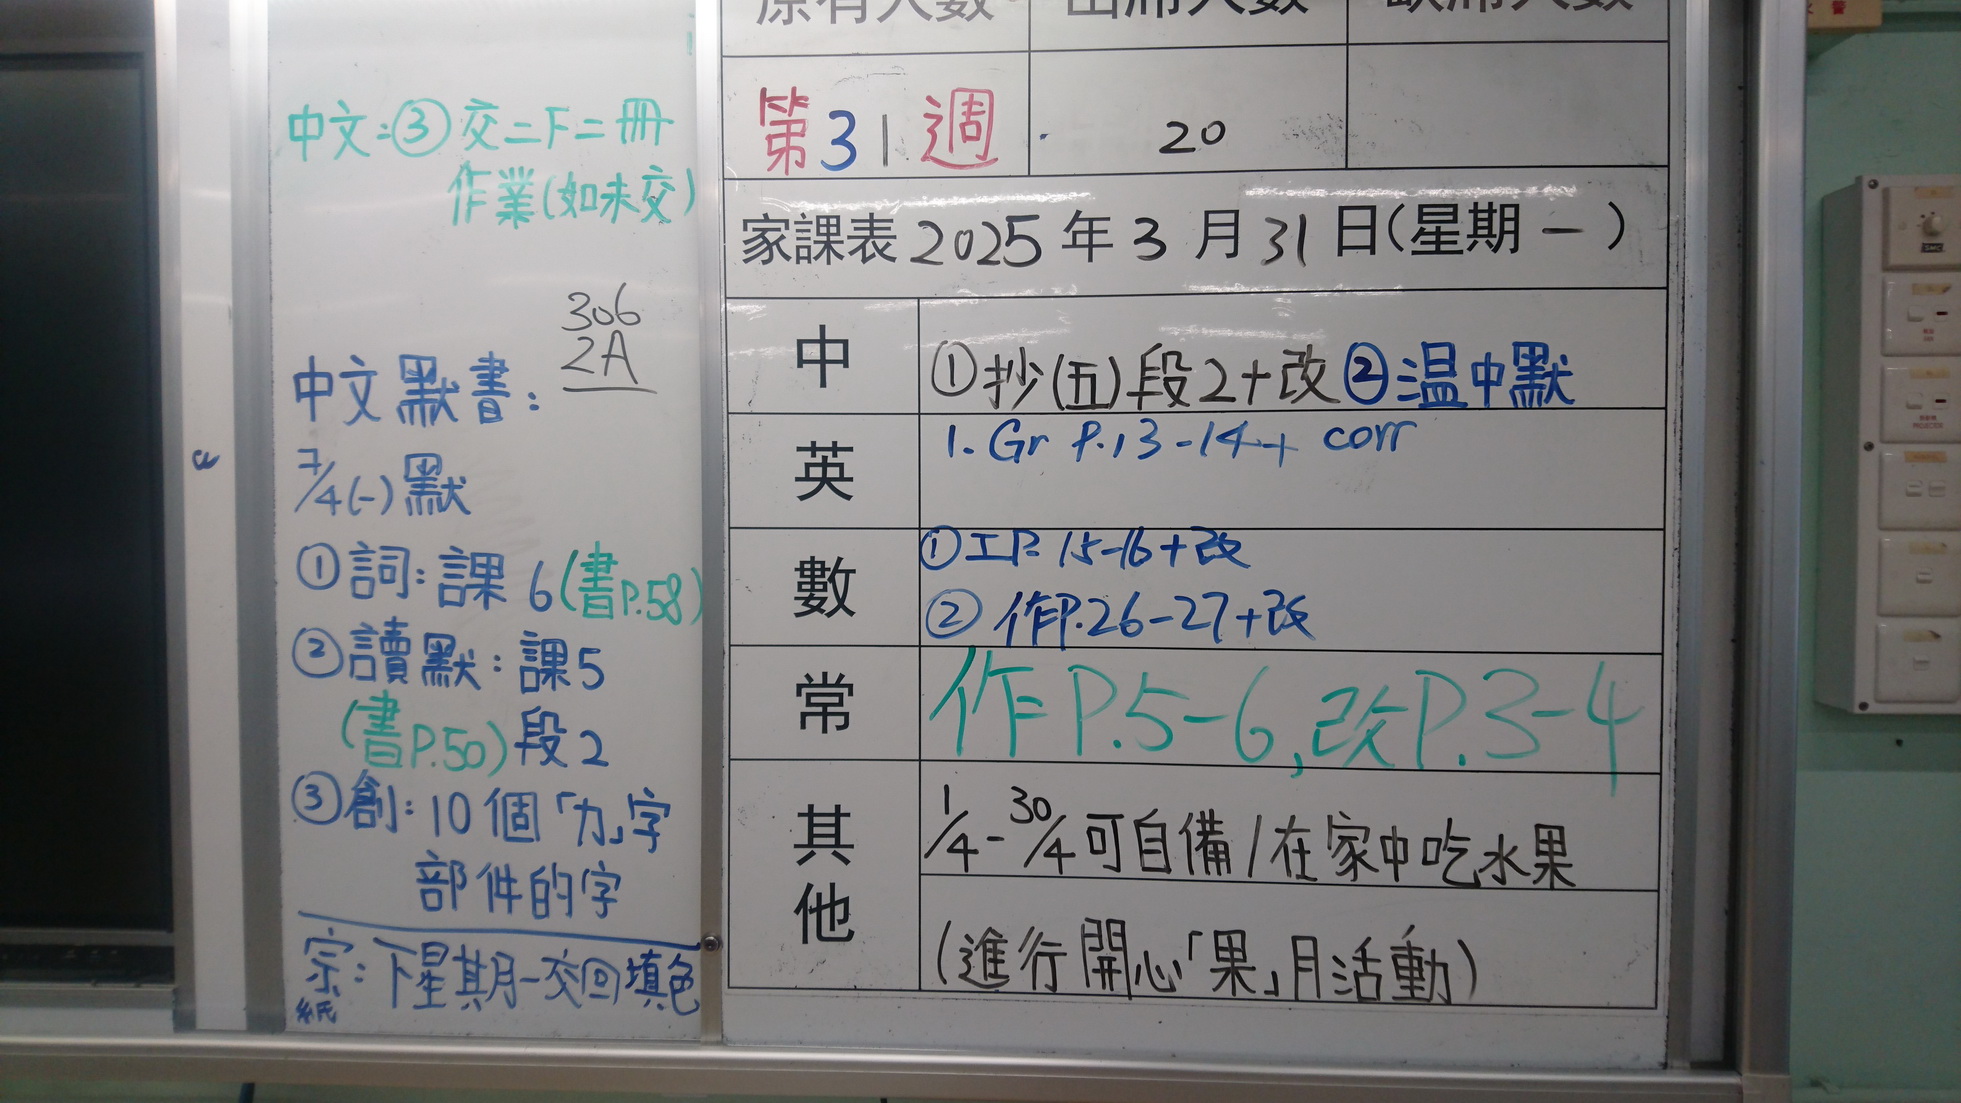 中文:③交二下二冊
作業(如未交)
306
2A
中文默書:
7/4(一)默
①詞:課6(書P.58)
②讀默:課5
(書P.50)段2
③創:10個「力」字
部件的字
宗:下星期一交回填色
紙
原有人數 出席人數 缺席人數
第31週 20
家課表2025年3月31日(星期一)
中 ①抄(五)段2+改②温中默
英 1. Gr P.13-14+ corr
數 ①工P. 15-16+改
② 作P.26-27+改
常 作P.5-6,改P.3-4
其他 1/4-30/4可自備/在家中吃水果
(進行開心「果」月活動)